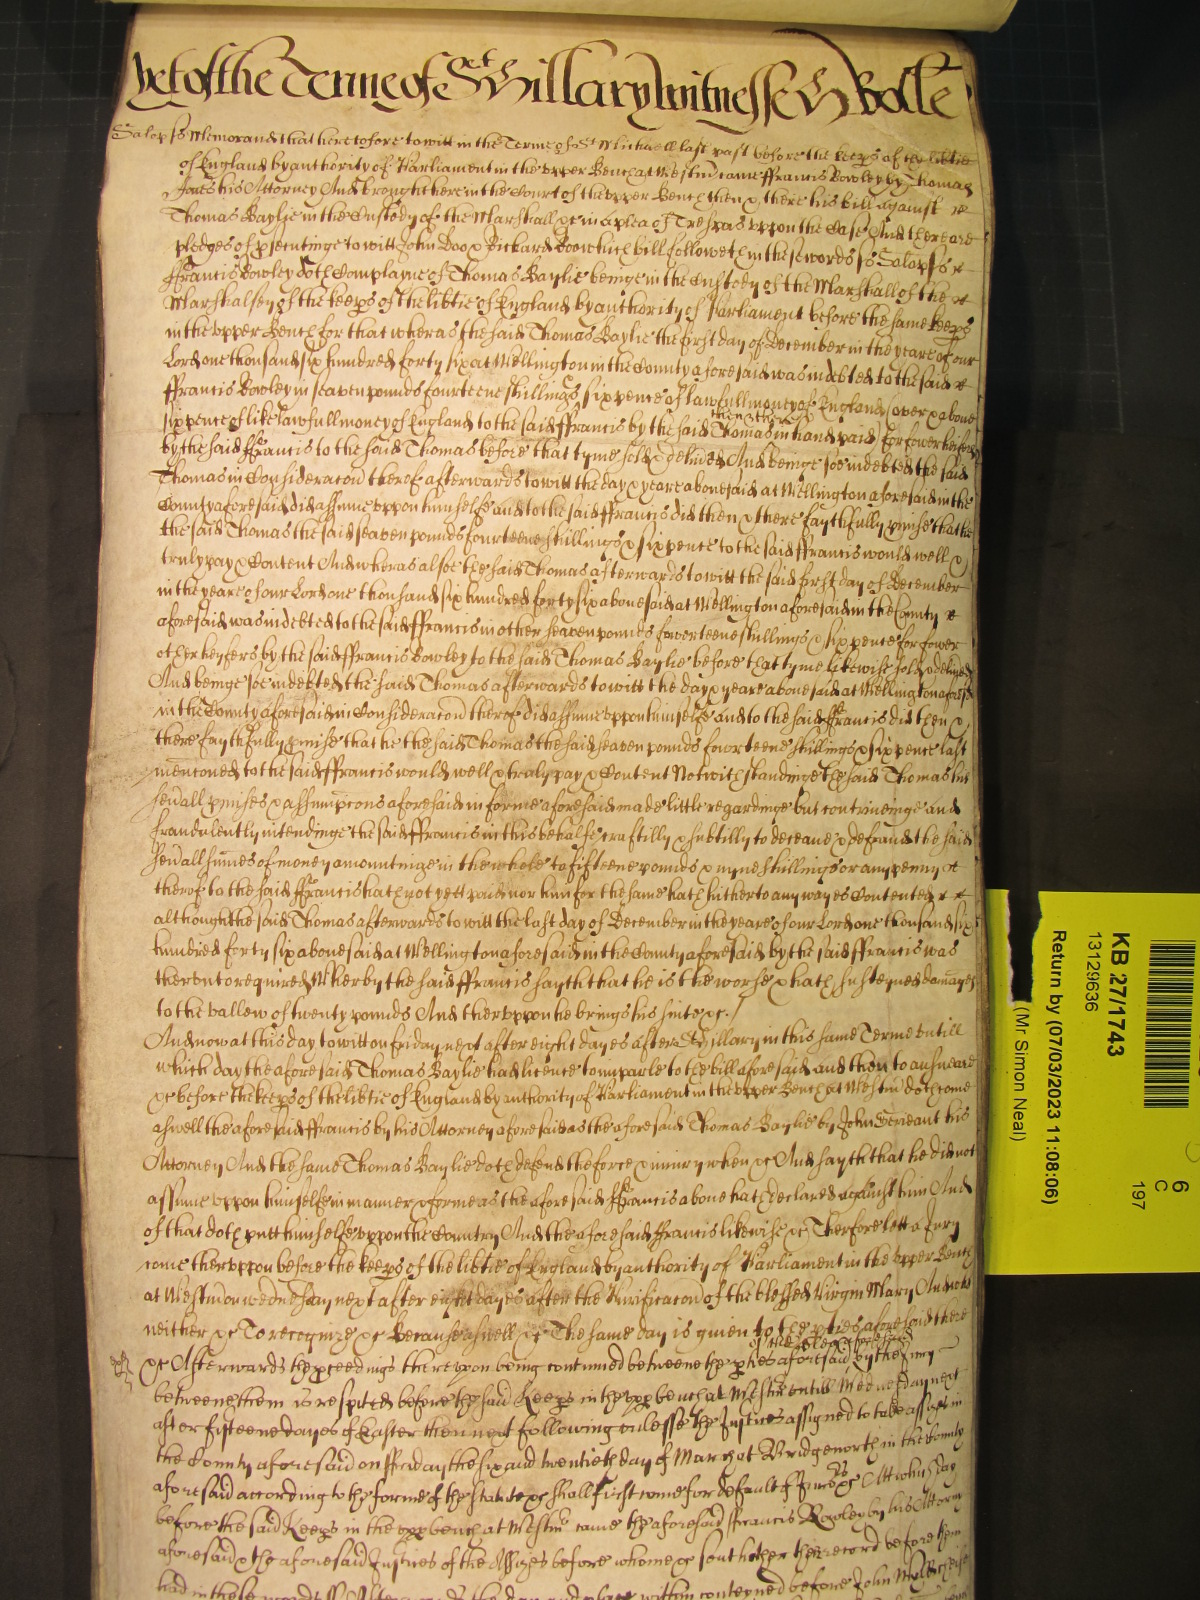 yet of the Terme of St Hillary witnesse H Rolle
Salop ss Memorand that heretofore to witt in the Terme of St Michaell last past before the keeps of the libtie
of England by authority of Parliament in the upper Bench at Westm came ffrancis Rowley by Thomas
Jones his Attorney And brought here in the Court of the upper Bench then & there his bill against
Thomas Baylie in the Custody of the Marshall &c in a plea of Trespas uppon the Case And there are
pledges of psecutinge to witt John Doo & Richard Roo which bill followeth in these words ss Salop ss
ffrancis Rowley doth Complayne of Thomas Baylie beinge in the Custody of the Marshall of the
Marshalsey of the keeps of the libtie of England by authority of Parliament before the same keeps
in the upper Bench for that wheras the said Thomas Baylie the first day of December in the yeare of our
Lord one thousand six hundred forty six at Wellington in the County aforesaid was indebted to the said
ffrancis Rowley in seaven pounds fourteene shillings sixpence of lawfull money of England (over & above
sixpence of like lawfull money of England to the said ffrancis by the said Thomas then & there in hand paid) for fower heifers
by the said ffrancis to the said Thomas before that tyme sold & delived And beinge soe indebted the said
Thomas in Consideracon therof afterwards to witt the day & yeare abovesaid at Wellington aforesaid in the
County aforesaid did assume uppon himselfe and to the said ffrancis did then & there faythfully pmise that he
the said Thomas the said seaven pounds fourteene shillings & sixpence to the said ffrancis would well &
truly pay & Content And wheras alsoe the said Thomas afterwards to witt the said first day of December
in the yeare of our Lord one thousand six hundred forty six abovesaid at Wellington aforesaid in the County
aforesaid was indebted to the said ffrancis in other seaven pounds fowerteene shillings & sixpence for fower
other heyfers by the said ffrancis Rowley to the said Thomas Baylie before that tyme likewise sold & delived
And beinge soe indebted the said Thomas afterwards to witt the day & yeare abovesaid at Wellington aforesd
in the County aforesaid in Consideracon therof did assume uppon himselfe and to the said ffrancis did then &
there faythfully pmise that he the said Thomas the said seaven pounds fowrteene shillings & sixpence last
mentioned to the said ffrancis would well & truly pay & Content Notwithstandinge the said Thomas his
sevall pmises & assumpcons aforesaid in forme aforesaid made little regardinge but contriveinge and
fraudulently intendinge the said ffrancis in this behalfe craftilly & subtilly to deceave & defraud the said
sevall summes of money amountinge in the whole to fifteene pounds & nyne shillings or any penny
therof to the said ffrancis hath not yett paid nor him for the same hath hitherto any wayes Contented
although the said Thomas afterwards to witt the last day of December in the yeare of our Lord one thousand six
hundred forty six abovesaid at Wellington aforesaid in the County aforesaid by the said ffrancis was
therunto required Wherby the said ffrancis sayth that he is the worse & hath susteyned damages
to the vallew of twenty pounds And theruppon he brings his suite &c./
And now at this day to witt on friday next after eight dayes after St Hillary in this same Terme untill
which day the aforesaid Thomas Baylie had licence to imparle to the bill aforesaid and then to answeare
&c before the keeps of the libtie of England by authority of Parliament in the upper Bench at Westm doth come
aswell the aforesaid ffrancis by his Attorney aforesaid as the aforesaid Thomas Baylie by John
his
Attorney And the same Thomas Baylie doth defend the force & iniury when &c And sayth that he did not
assume uppon himselfe in manner & forme as the aforesaid ffrancis above hath declared against him And
of that doth putt himselfe uppon the Country And the aforesaid ffrancis likewise &c Therfore lett a Jury
come theruppon before the keeps of the libtie of England by authority of Parliament in the upper Bench
at Westm on wednesday next after eight dayes after the Purificacon of the blessed Virgin Mary And who
neither &c To recognize &c Because aswell &c The same day is given to the pties aforesaid there
&c Afterwards the pceedings thereupon being continued betweene the pties aforesaid by the Jury
betweene them is respited before the said Keeps in the upp bench at Westm untill Wednesday next
after fifteene dayes of Easter then next following unlesse the Justices assigned to take assizes in
the County aforesaid on ffriday the six and twentieth day of March at Bridgenorth in the County
aforesaid according to the forme of the statute &c shall first come for default of Jurors &c Att which day
before the said Keeps in the upp bench at Westm came the aforesaid ffrancis Rowley by his Attorny
aforesaid & the aforesaid Justices of the Assizes before whome &c sent hether their record before them
had in these words ss Afterwards the day and place within conteyned before John
KB 27/1743
13129636
Return by (07/03/2023 11:08:06)
(Mr Simon Neal)
6
C
197